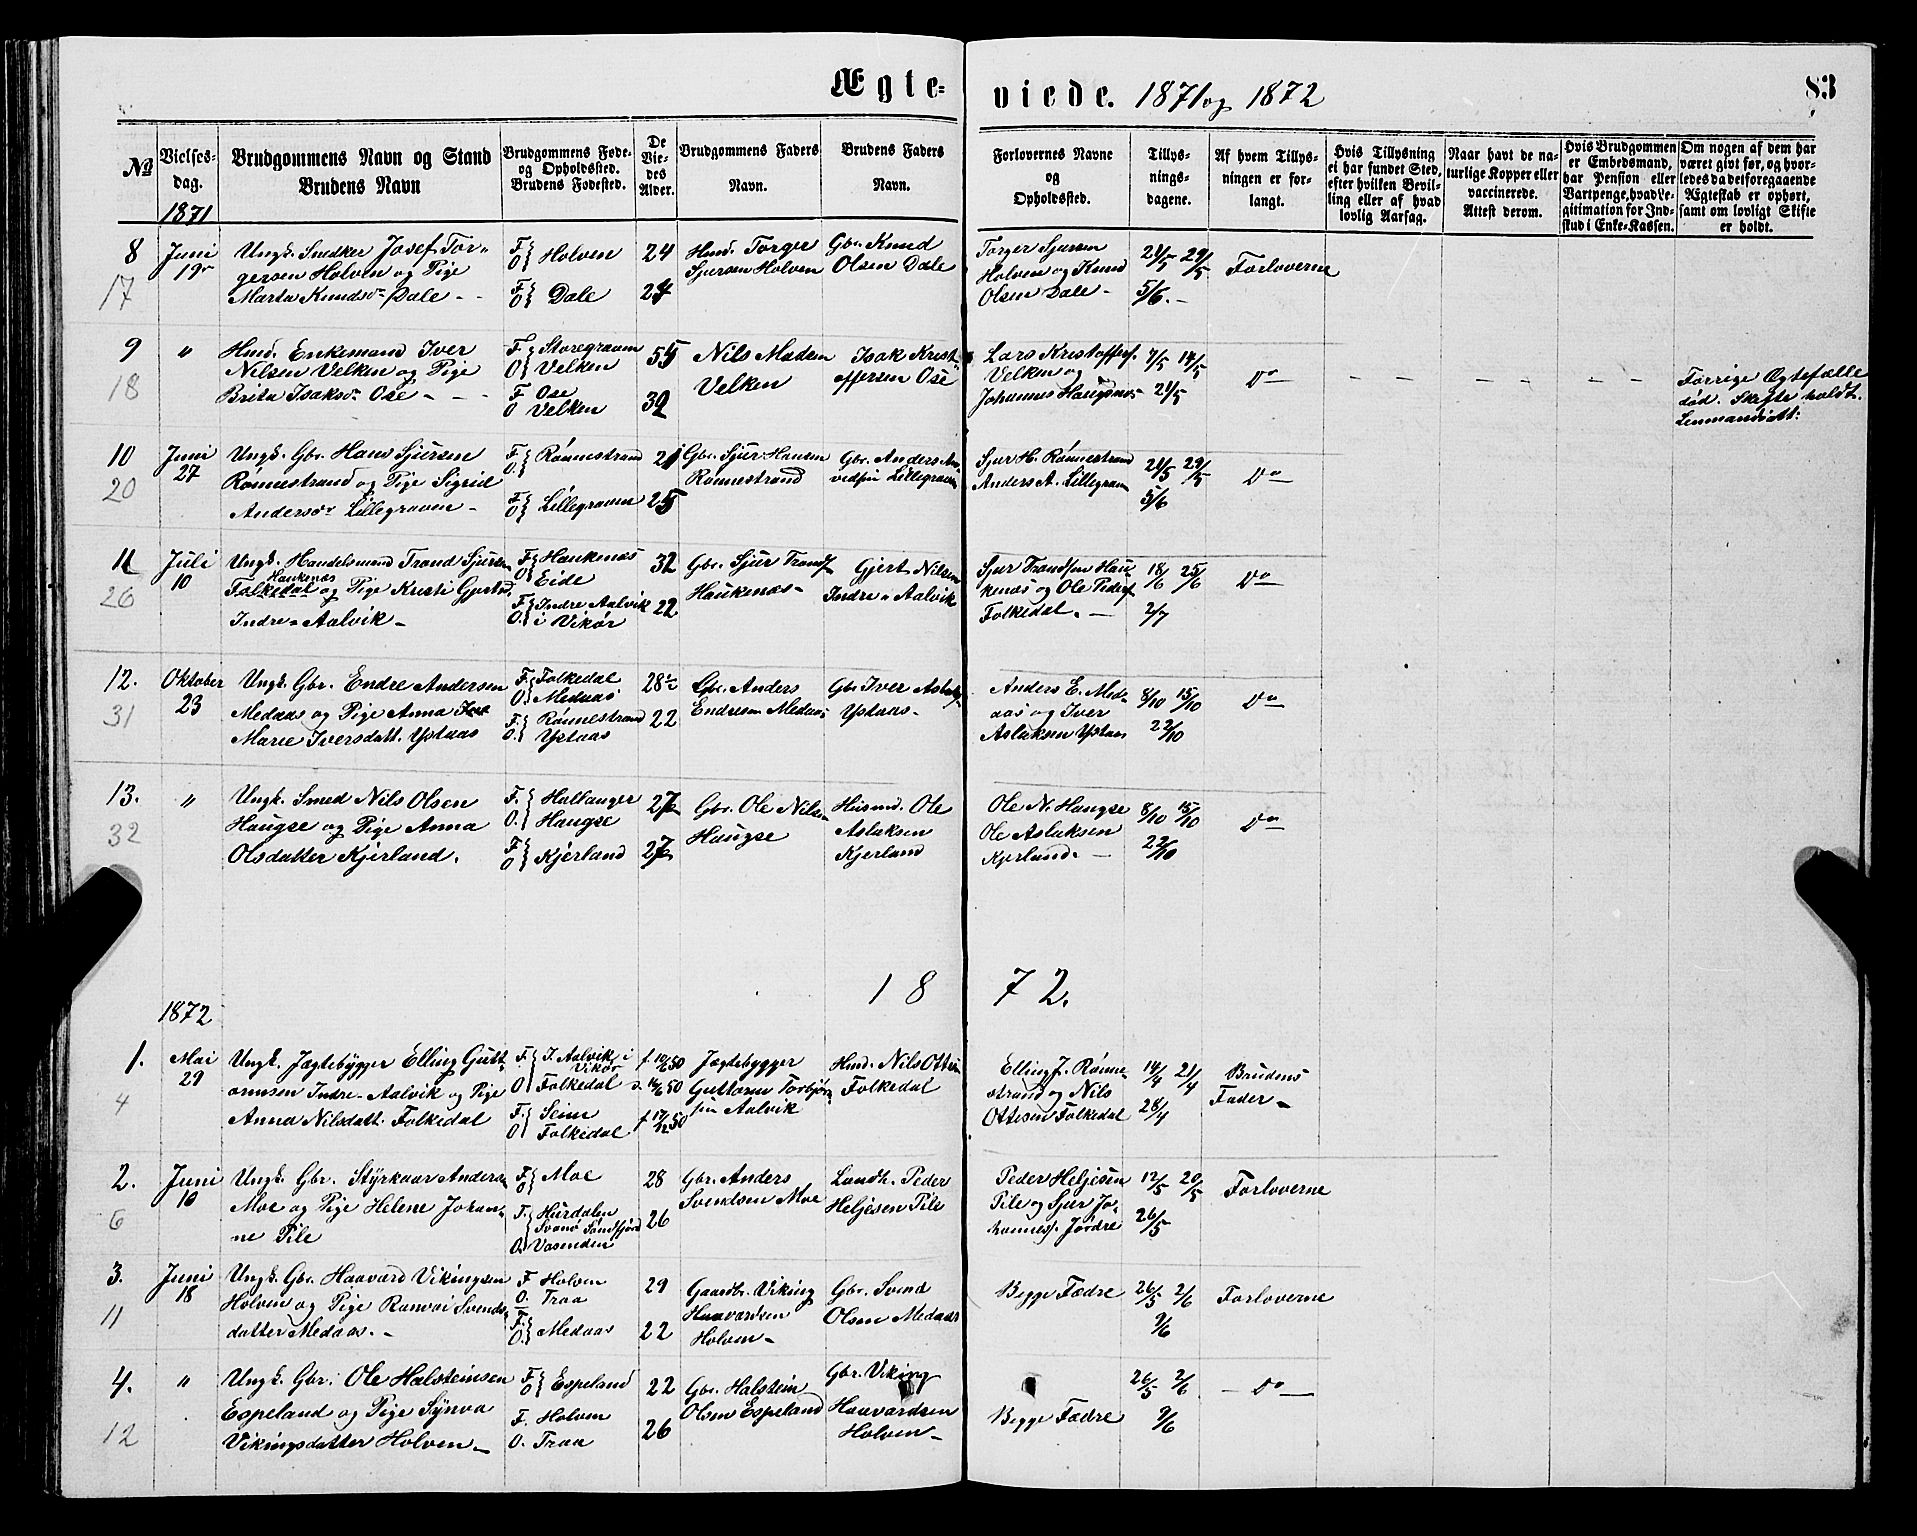 Ægte-
viede. 1871 og 1872
83
№
Vielses-
dag.
1871
Brudgommens Navn og Stand
Brudens Navn
Brudgommens Føde-
og Opholdssted.
Brudens Fødested.
De
Vie-
des
Alder.
Brudgommens Faders
Navn.
Brudens Faders
Navn.
Forlovernes Navne
og
Opholdssted.
Tillys-
nings-
dagene.
Af hvem Tillys-
ningen er for-
langt.
Hvis Tillysning
ei har fundet Sted,
efter hvilken Bevil-
ling eller af hvad
lovlig Aarsag.
Naar havt de na-
turlige Kopper eller
vaccinerede.
Attest derom.
Hvis Brudgommen
er Embedsmand,
har Pension eller
Vartpenge, hvad Le-
gitimation for Ind-
skud i Enke-Kassen.
Om nogen af dem har
været givt før, og hvor-
ledes da det foregaaende
Ægteskab er ophørt,
samt om lovligt Skifte
er holdt.
8
17
Juni
19
Ungk. Snedker Josef Tor-
gersen Holven og Pige
Marta Knudsdr Dale
F O Holven
F O Dale
24
24
Hmd. Torger
Sjursen Holven
Gbr. Knud
Olsen Dale
Torger Sjursen
Holven og Knud
Olsen Dale
21/5 29/5
5/6
Forloverne
9
18
"
Hmd. Enkemand Iver
Nilsen Velken og Pige
Brita Isaksdr Ose
F. Storegraven
O Velken
F Ose
O Velken
55
Nils Madsen
Velken
Isak Krist-
offersen Ose
Lars Kristoffers.
Velken og
Johannes Haugsnes
7/5 14/5
21/5
Do
Førrige Ægtefælle
død. Skifte holdt.
10
20
Juni
27
Ungk. Gbr. Hans Sjursen
Rønnestrand og Pige Sigrid
Andersdr Lillegraven
F. O. Rønnestrand
F O Lillegraven
21
25
Gbr. Sjur Hansen
Rønnestrand
Gbr. Anders
Lillegraven
Sjur H. Rønnestrand
Anders A. Lillegraven
21/5 29/5
5/6
Do
11
26
Juli
10
Ungk. Handelsmand Trond Sjursen
Haukenæs
Folkedal og Pige Kristi Gjertsd.
Indre-Aalvik
F. Haukenæs
O Eide
F. O. Indre Aalvik
i Vikør
32
22
Gbr. Sjur Tronds.
Haukenæs
Gjert Nilsen
Indre-Aalvik
Sjur Trondsen Hau-
kenæs og Ole Peders.
Folkedal.
18/6 25/6
2/7
Do
12.
31
Oktober
23
Ungk. Gbr. Endre Andersen
Medaas og Pige Anna
Marie Iversdatt. Ystaas
F. Folkedal
O. Medaas
F. Rønnestrand
O. Ystaas
28½
22
Gbr. Anders
Endresen Medaas
Gbr Iver Aslaks.
Ystaas
Anders E. Med-
aas og Iver
Aslaksen Ystaas
8/10 15/10
22/10
Do
13.
32
"
Ungk. Smed Nils Olsen
Haugse og Pige Anna
Olsdatter Kjerland.
F. Hallanger
O. Haugse
F O Kjerland
Gbr. Ole Nilsen
Haugse
Husmd. Ole
Aslaksen
Kjerland
Ole N. Haugse
Ole Aslaksen
Kjerland.
8/10 15/10
22/10
Do
18 72.
1872
1.
4
Mai
29
Ungk. Jagtebygger Elling Gutt-
ormsen Indre-Aalvik og Pige
Anna Nilsdatt. Folkedal
F. I. Aalvik i
Vikør
O Folkedal
F. Seim
O Folkedal
Jagtebygger
Guttorm Torbjørn-
sen Aalvik
Hmd. Nils Ottesen
Folkedal
Elling J. Rønne-
strand og Nils
Ottesen Folkedal
14/4 21/4
28/4
Brudens
Fader
2.
6
Juni
10
Ungk. Gbr. Styrkaar Anders.
Moe og Pige Helene Johan-
ne Pile
F O Moe
F. Hurdalen
Svanø Søndfjord
O. Vasenden
28
26
Gbr. Anders
Svendsen Moe
Landh. Peder
Heljesen Pile
Peder Heljesen
Pile og Sjur Jo-
hanness. Jordre
12/5 20/5
26/5
Forloverne
3.
11
Juni
18
Ungk. Gbr. Haavard Vikingsen
Holven og Pige Ranvei Svends-
datter Medaas.
F Holven
O. Traa
F. O. Medaas
29
22
Gaardbr. Viking
Haavardsen
Holven
Gbr. Svend
Olsen Medaas
Begge Fædre
26/5 2/6
9/6
Forloverne
4.
12
"
Ungk. Gbr. Ole Halsteinsen
Espeland og Pige Synva
Vikingsdatter Holven
F O Espeland
F. Holven
O. Traa
22
26
Gbr. Halstein
Olsen Espeland
Gbr. Viking
Haavardsen
Holven
Begge Fædre
26/5 2/6
9/6
Do